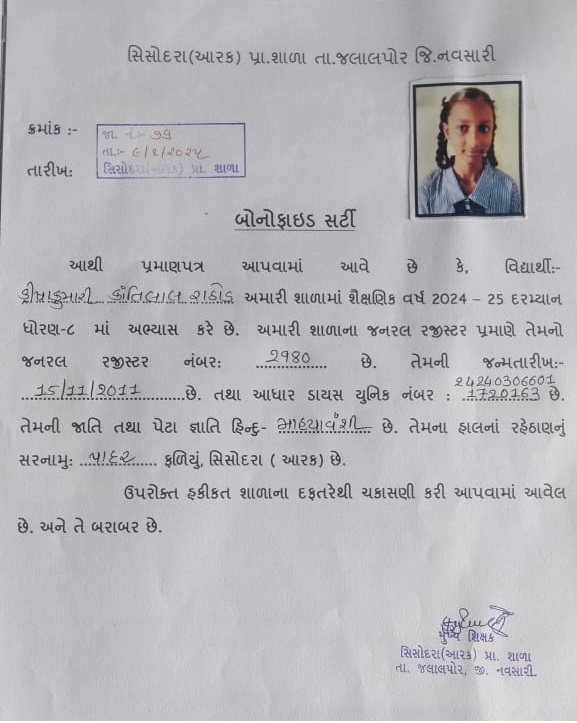 સિસોદરા(આરક) પ્રા.શાળા તા.જલાલપોર જિ.નવસારી
ક્રમાંક :-
જા. નં:- ૭૬
તા.:- ૯/૧/૨૦૨૫
સિસોદરા(આરક) પ્રા. શાળા
તારીખ:
બોનોફાઇડ સર્ટી
આથી પ્રમાણપત્ર આપવામાં આવે છે કે, વિદ્યાર્થી:-
કાંતિલાલ રાઠોડ અમારી શાળામાં શૈક્ષણિક વર્ષ 2024 – 25 દરમ્યાન
ધોરણ-૮ માં અભ્યાસ કરે છે. અમારી શાળાના જનરલ રજીસ્ટર પ્રમાણે તેમનો
જનરલ રજીસ્ટર નંબર: 2980 છે. તેમની જન્મતારીખ:-
15/11/2011 છે. તથા આધાર ડાયસ યુનિક નંબર : 24240306601
1720163 છે.
તેમની જાતિ તથા પેટા જ્ઞાતિ હિન્દુ- માહ્યાવંશી છે. તેમના હાલનાં રહેઠાણનું
સરનામુ: પાદર ફળિયું, સિસોદરા ( આરક) છે.
ઉપરોક્ત હકીકત શાળાના દફતરેથી ચકાસણી કરી આપવામાં આવેલ
છે. અને તે બરાબર છે.
મુખ્ય શિક્ષક
સિસોદરા(આરક) પ્રા. શાળા
તા. જલાલપોર, જી. નવસારી.